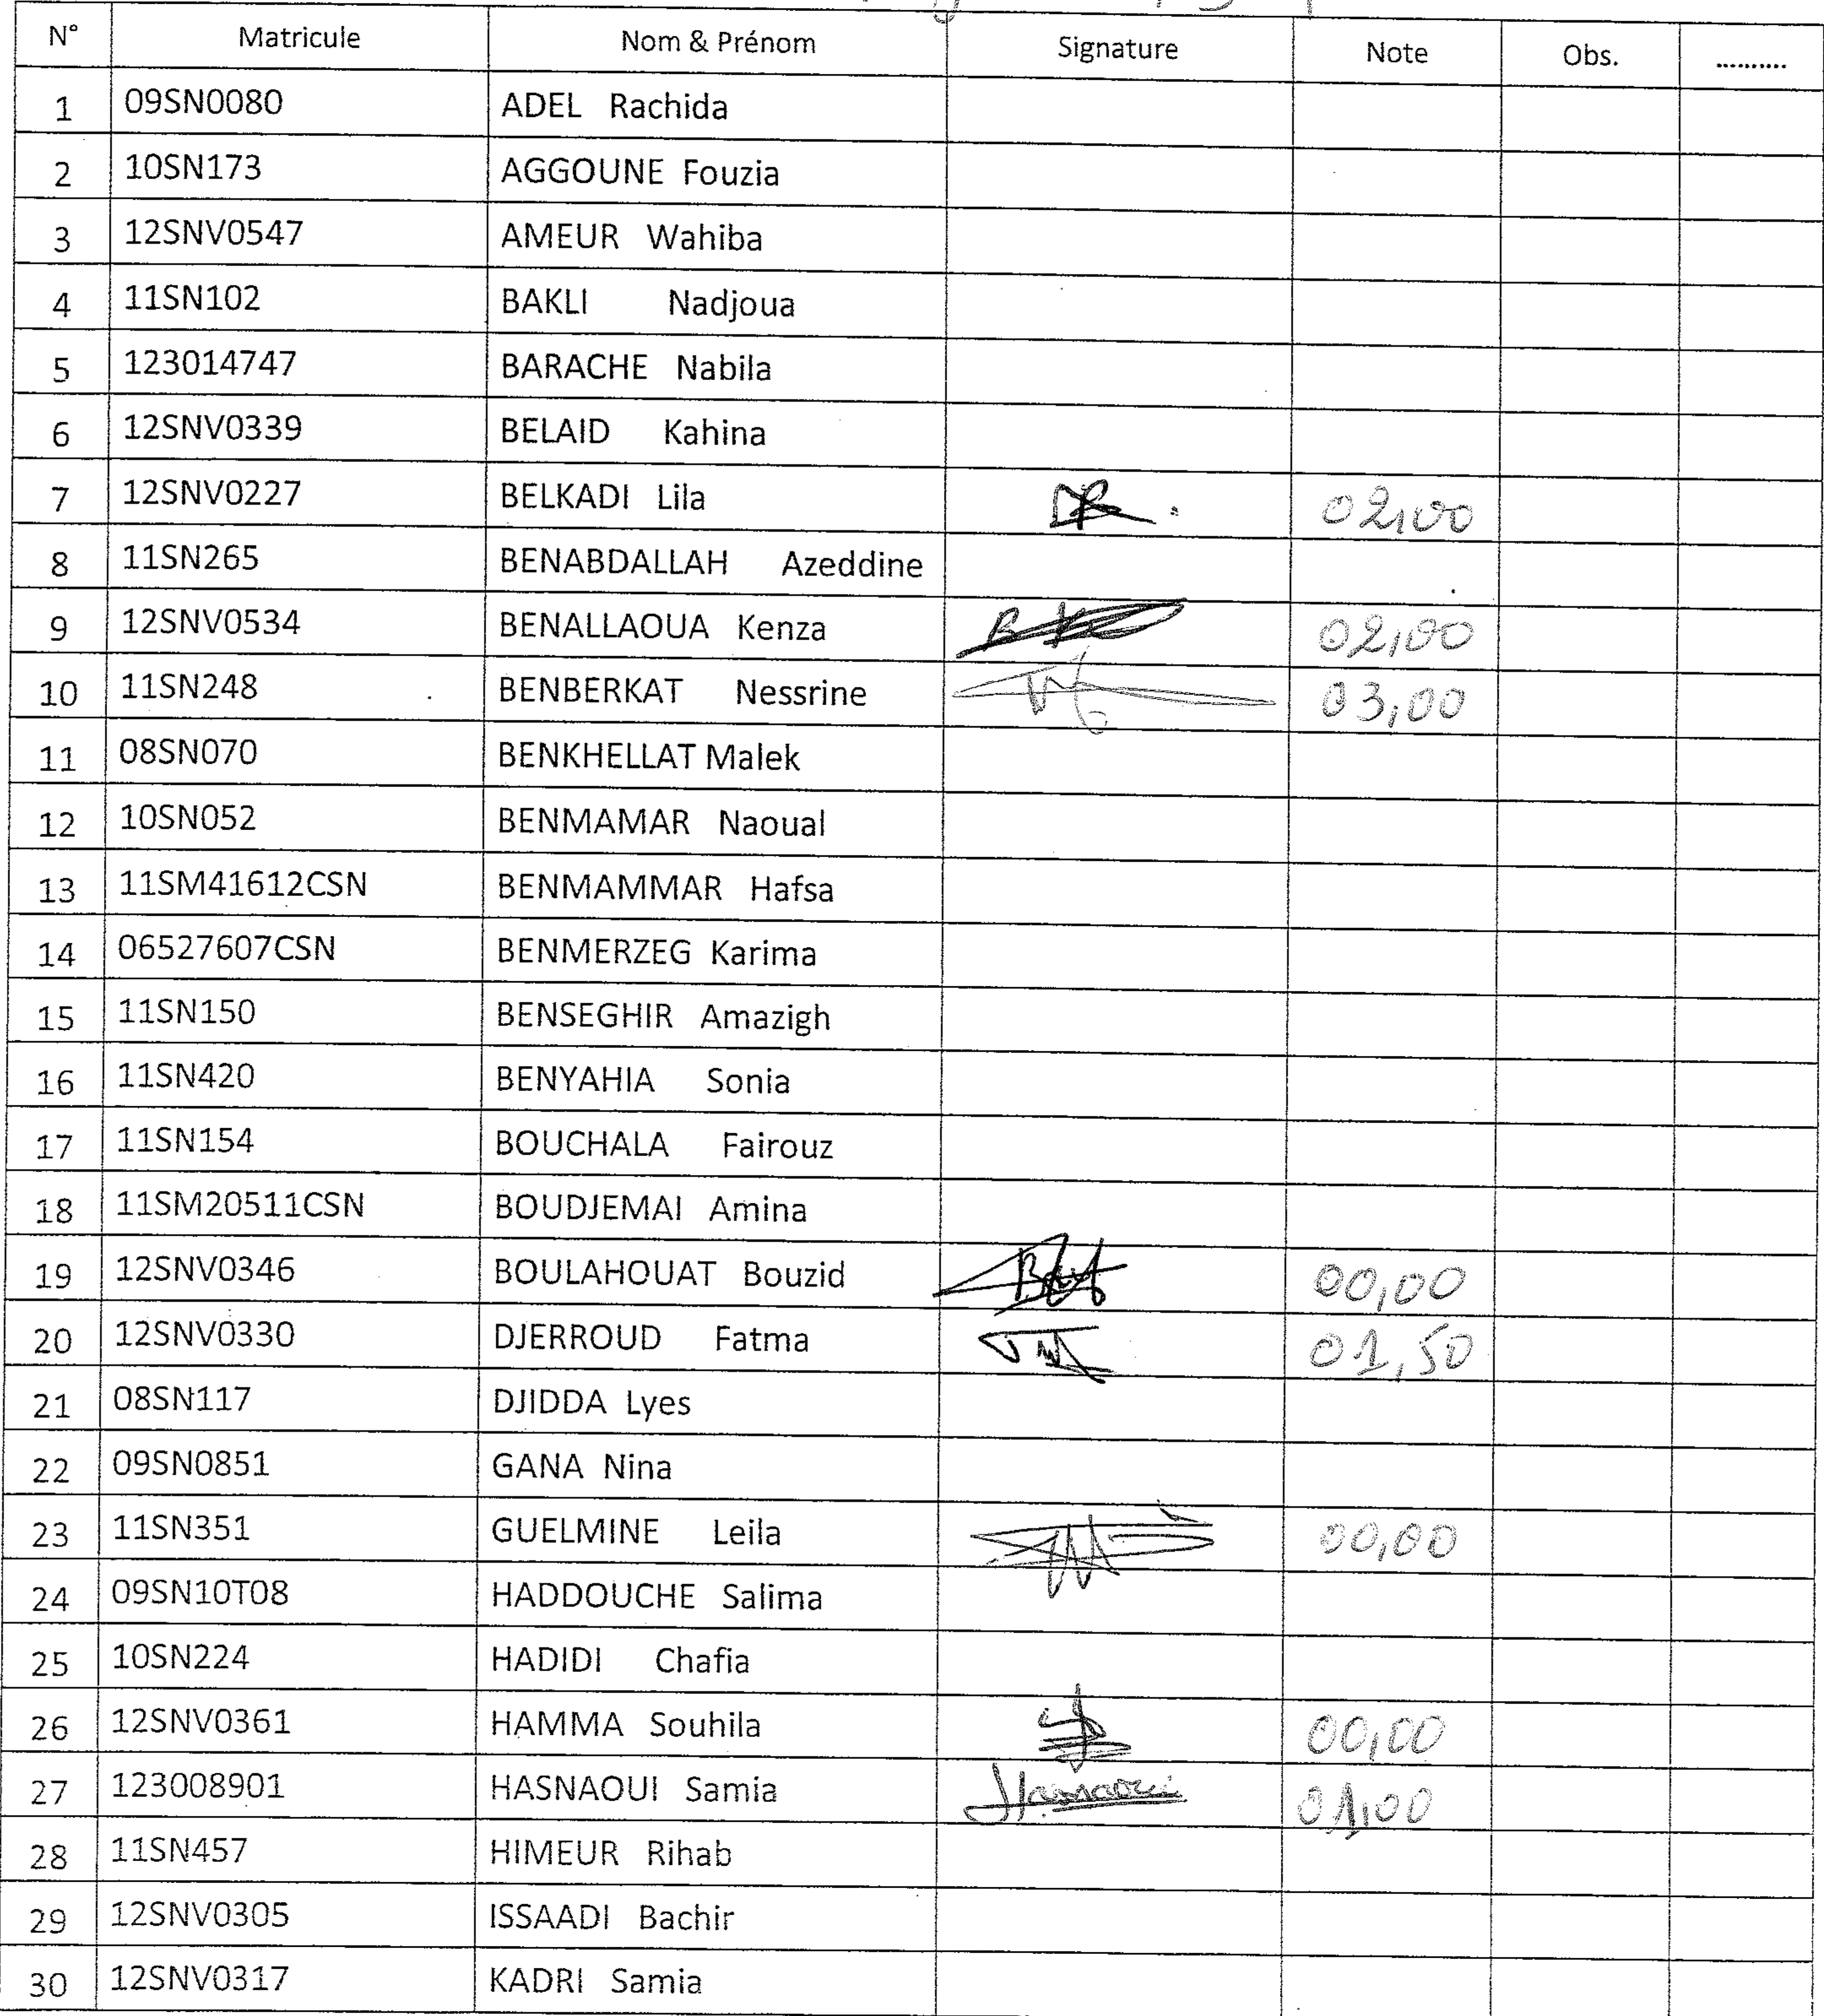 N° Matricule Nom & Prénom Signature Note Obs. ..........
1 09SN0080 ADEL Rachida
2 10SN173 AGGOUNE Fouzia
3 12SNV0547 AMEUR Wahiba
4 11SN102 BAKLI Nadjoua
5 123014747 BARACHE Nabila
6 12SNV0339 BELAID Kahina
7 12SNV0227 BELKADI Lila 02,00
8 11SN265 BENABDALLAH Azeddine
9 12SNV0534 BENALLAOUA Kenza 02,00
10 11SN248 BENBERKAT Nessrine 03,00
11 08SN070 BENKHELLAT Malek
12 10SN052 BENMAMAR Naoual
13 11SM41612CSN BENMAMMAR Hafsa
14 06527607CSN BENMERZEG Karima
15 11SN150 BENSEGHIR Amazigh
16 11SN420 BENYAHIA Sonia
17 11SN154 BOUCHALA Fairouz
18 11SM20511CSN BOUDJEMAI Amina
19 12SNV0346 BOULAHOUAT Bouzid 00,00
20 12SNV0330 DJERROUD Fatma 01,50
21 08SN117 DJIDDA Lyes
22 09SN0851 GANA Nina
23 11SN351 GUELMINE Leila 00,00
24 09SN10T08 HADDOUCHE Salima
25 10SN224 HADIDI Chafia
26 12SNV0361 HAMMA Souhila 00,00
27 123008901 HASNAOUI Samia Hasnaoui 01,00
28 11SN457 HIMEUR Rihab
29 12SNV0305 ISSAADI Bachir
30 12SNV0317 KADRI Samia